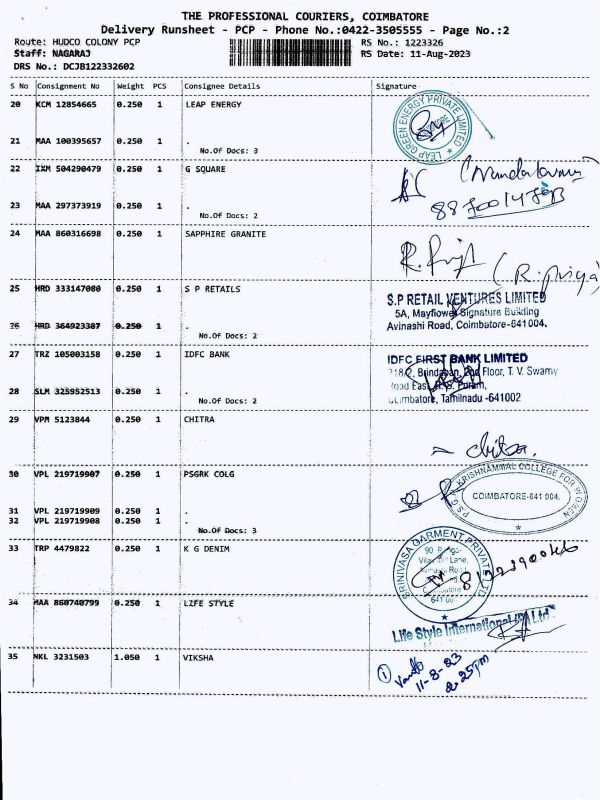 THE PROFESSIONAL COURIERS, COIMBATORE
Delivery Runsheet - PCP - Phone No.:0422-3505555 - Page No.:2
Route: HUDCO COLONY PCP RS No.: 1223326
Staff: NAGARAJ RS Date: 11-Aug-2023
DRS No.: DCJB122332602
S No Consignment No Weight PCS Consignee Details Signature
20 KCM 12854665 0.250 1 LEAP ENERGY
LEAP GREEN ENERGY PRIVATE LIMITED
21 MAA 100395657 0.250 1 .
No.Of Docs: 3
22 IXM 504290479 0.250 1 G SQUARE
23 MAA 297373919 0.250 1 .
No.Of Docs: 2
24 MAA 860316698 0.250 1 SAPPHIRE GRANITE
(R. priya)
25 HRD 333147080 0.250 1 S P RETAILS
S.P RETAIL VENTURES LIMITED
5A, Mayflower Signature Building
Avinashi Road, Coimbatore-641004.
26 HRD 364923387 0.250 1 .
No.Of Docs: 2
27 TRZ 105003158 0.250 1 IDFC BANK
IDFC FIRST BANK LIMITED
Brindaban, 2nd Floor, T. V. Swamy
Road East, R.S. Puram,
Coimbatore, Tamilnadu -641002
28 SLM 325952513 0.250 1 .
No.Of Docs: 2
29 VPM 5123844 0.250 1 CHITRA
chitra.
30 VPL 219719907 0.250 1 PSGRK COLG
P.S.G.R. KRISHNAMMAL COLLEGE FOR WOMEN
COIMBATORE-641 004.
31 VPL 219719909 0.250 1 .
32 VPL 219719908 0.250 1 .
No.Of Docs: 3
33 TRP 4479822 0.250 1 K G DENIM
SRINIVASA GARMENT PRIVATE LTD
34 MAA 860740799 0.250 1 LIFE STYLE
Life Style International (P) Ltd
35 NKL 3231503 1.050 1 VIKSHA
11-8-23
2.25pm